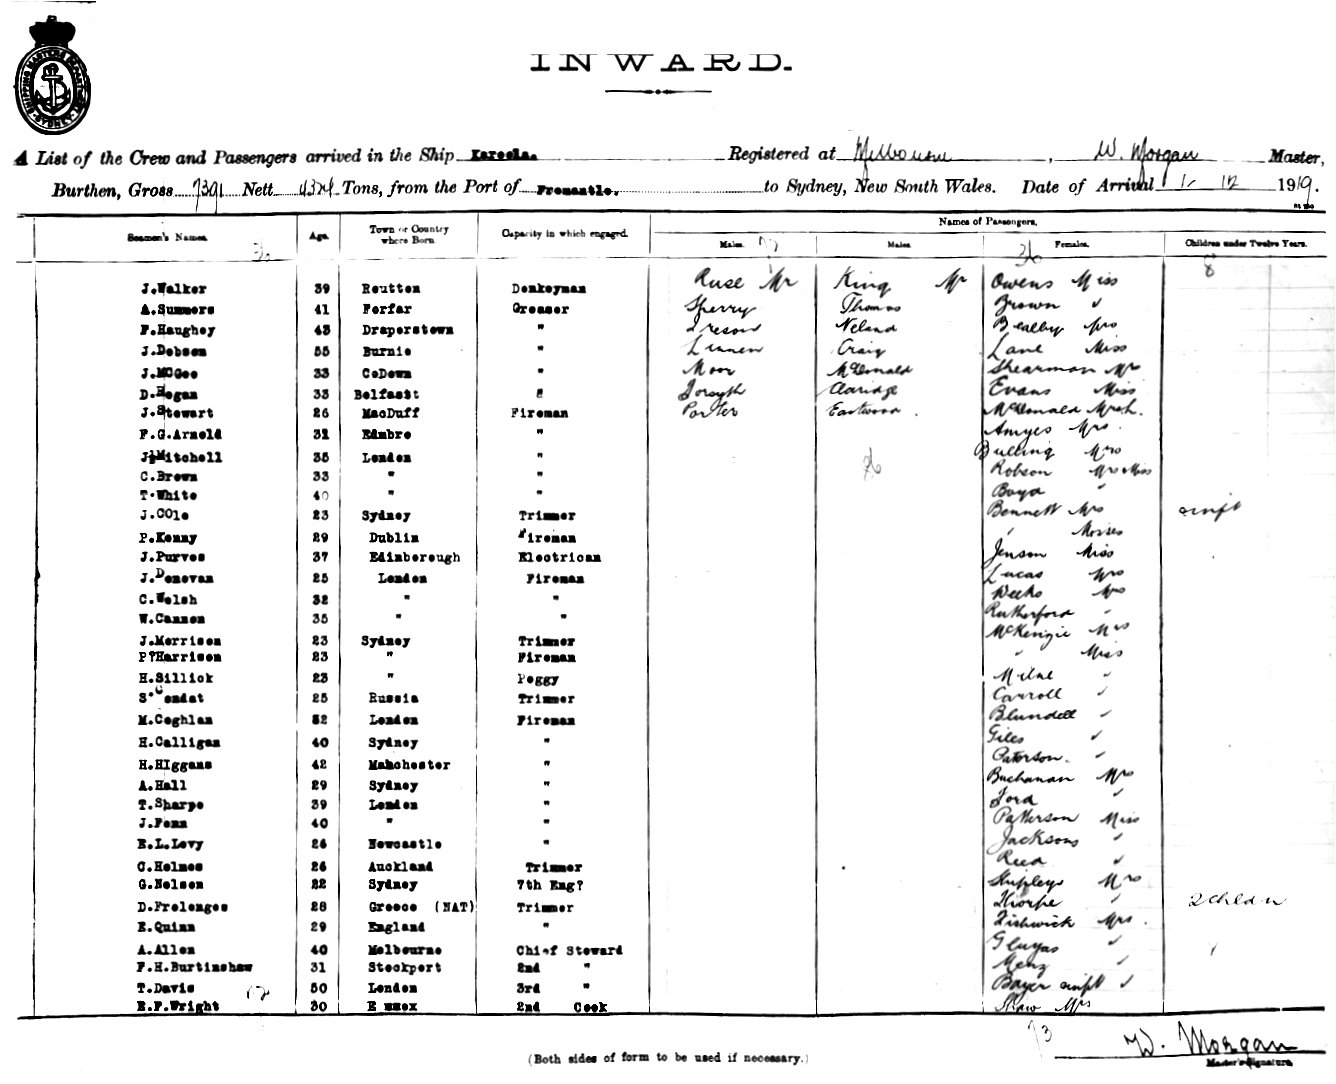 SHIPPING MASTERS DEPARTMENT SYDNEY
INWARD.
A List of the Crew and Passengers arrived in the Ship Kareela. Registered at Melbourne, W. Morgan Master,
Burthen, Gross 7391 Nett 4324 Tons, from the Port of Fremantle. to Sydney, New South Wales. Date of Arrival 1 12 1919.
Names of Passengers.
Seamen's Names. Age. Town or Country where Born. Capacity in which engaged. Males. Males. Females. Children under Twelve Years.
36 36 8
J.Walker 39 Reutten Donkeyman Ruse Mr King Mr Owens Miss
A.Summers 41 Forfar Greaser Sperry Thomas Brown "
F.Haughey 43 Draperstown " Ireson Neland Bealby Mrs
J.Dobson 55 Burnie " Linnen Craig Lane Miss
J.MCGee 33 CoDown " Moor McDonald Shearman Mr
D.Hogan 33 Belfastt " Forsyth Claridge Evans Miss
J.Stewart 26 MacDuff Fireman Porter Eastwood. McDonald
F.G.Arnold 31 Edmbro " Amyes Mrs.
J.Mitchell 35 London " Bulling Mrs
C.Brown 33 " " 26 Robson Mrs & Miss
T.White 40 " " Boyd "
J.COle 23 Sydney Trimmer Bennett Mrs & inft
P.Kenny 29 Dublin Fireman " Misses
J.Purves 37 Edinborough Electrican Jenson Miss
J.Donovan 25 London Fireman Lucas Mrs
C.Welsh 32 " " Weeks Mrs
W.Cannon 35 " " Rutherford "
J.Morrison 23 Sydney Trimmer McKenzie Mrs
P?Harrison 23 " Fireman " Miss
H.Sillick 23 " Peggy Milne "
S.Cendat 25 Russia Trimmer Carroll "
M.Coghlan 52 London Fireman Blundell "
H.Calligan 40 Sydney " Giles "
H.HIggans 42 Mahchester " Paterson. "
A.Hall 29 Sydney " Buchanan Mrs
T.Sharpe 39 London " Ford "
J.Penn 40 " " Patterson Miss
E.L.Levy 26 Newcastle " Jacksons "
C.Holmes 26 Auckland Trimmer Reed "
G.Nelson 22 Sydney 7th Eng? Shipleys Mrs
D.Prolenges 28 Greece (NAT) Trimmer Thorpe " 2 Childn
E.Quinn 29 England " Fishwick Mrs.
A.Allen 40 Melbourne Chief Steward Gluyas "
F.H.Burtinshaw 31 Stockport 2nd " Menz "
T.Davis 50 London 3rd " Boyer inft "
E.F.Wright 30 Essex 2nd Cook Shaw Mrs
73
W. Morgan
Master's Signature.
(Both sides of form to be used if necessary.)